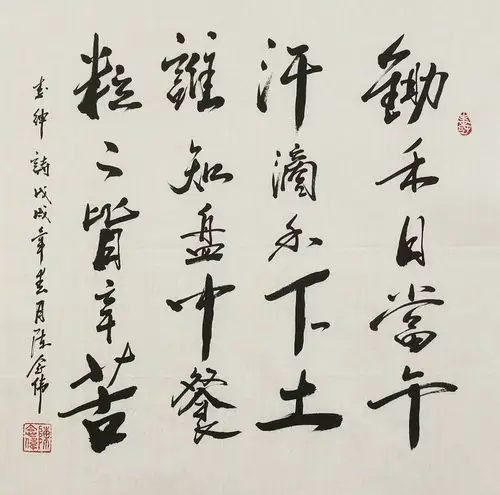 鋤禾日當午
汗滴禾下土
誰知盘中餐
粒〻皆辛苦
李紳詩戊戌年春月陳金偉